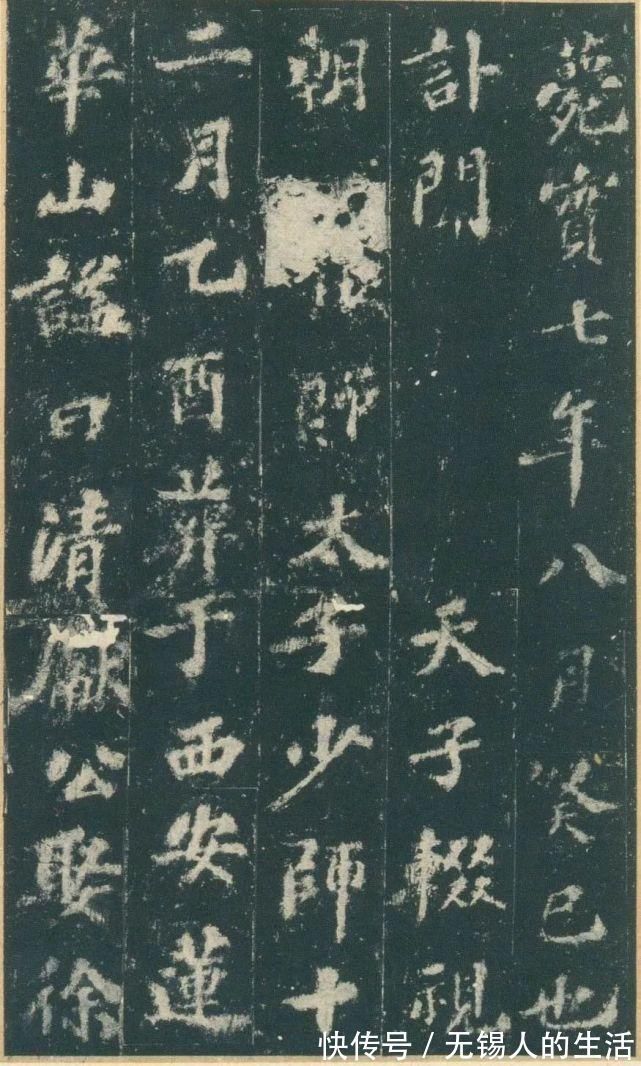 薨實七年八月癸巳也
訃聞 天子輟視
朝 太子少師十
二月乙酉葬于西安蓮
華山諡曰清獻公娶徐
快传号 / 无锡人的生活